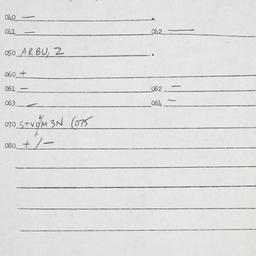 040 —
041 — 042 —
050 ARBU, 2
060 +
061 — 062 —
063 — 064 —
070 (075
080 + / —